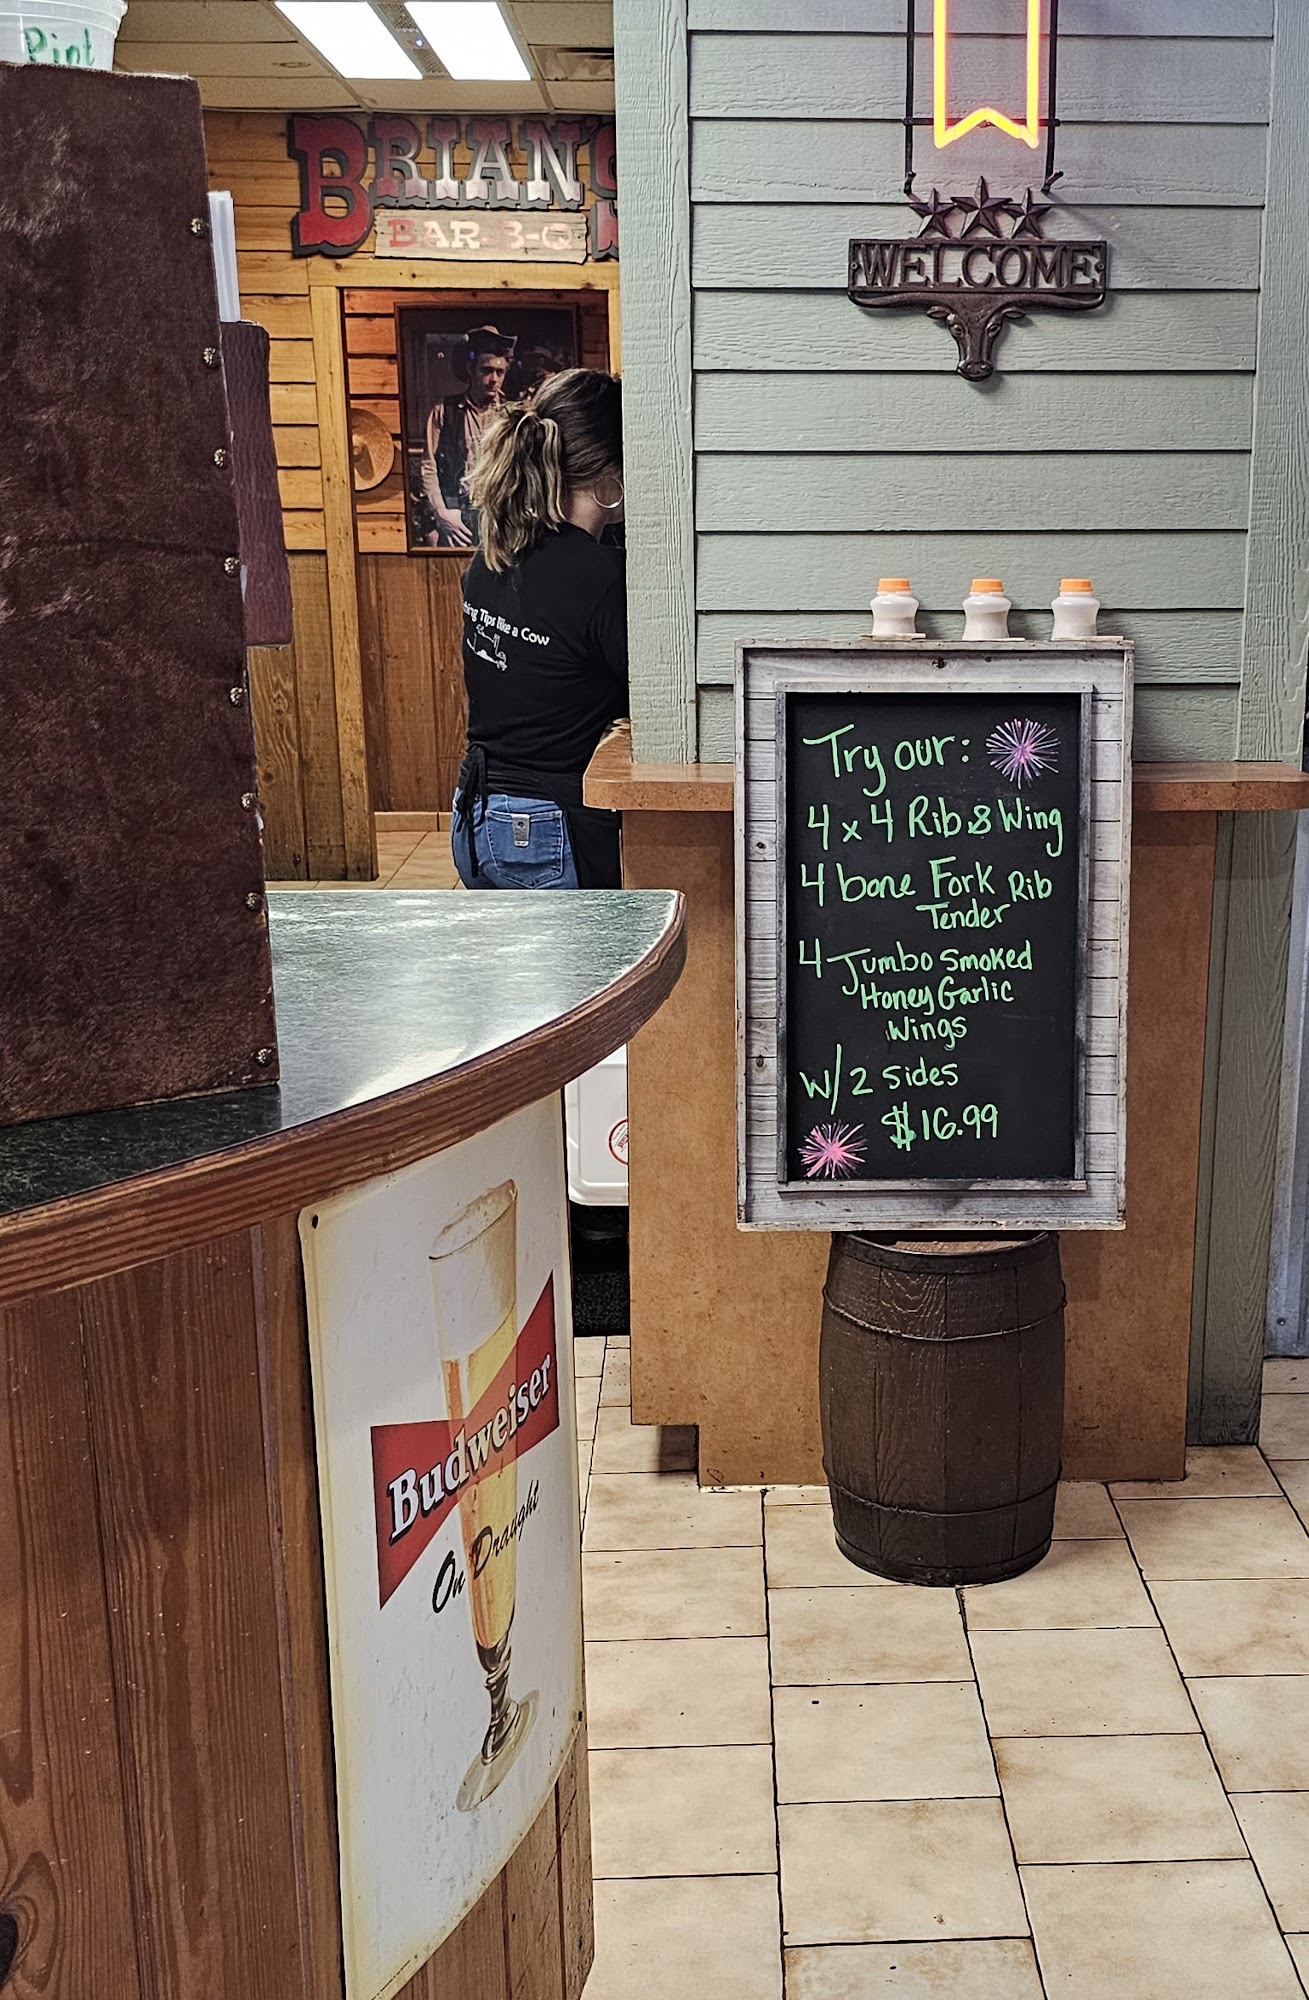 Pint
BRIAN'S
BAR-B-Q
WELCOME
Tips like a Cow
Try our:
4 x 4 Rib & Wing
4 bone Fork Rib
Tender
4 Jumbo Smoked
Honey Garlic
Wings
W/ 2 sides
$16.99
Budweiser
On Draught